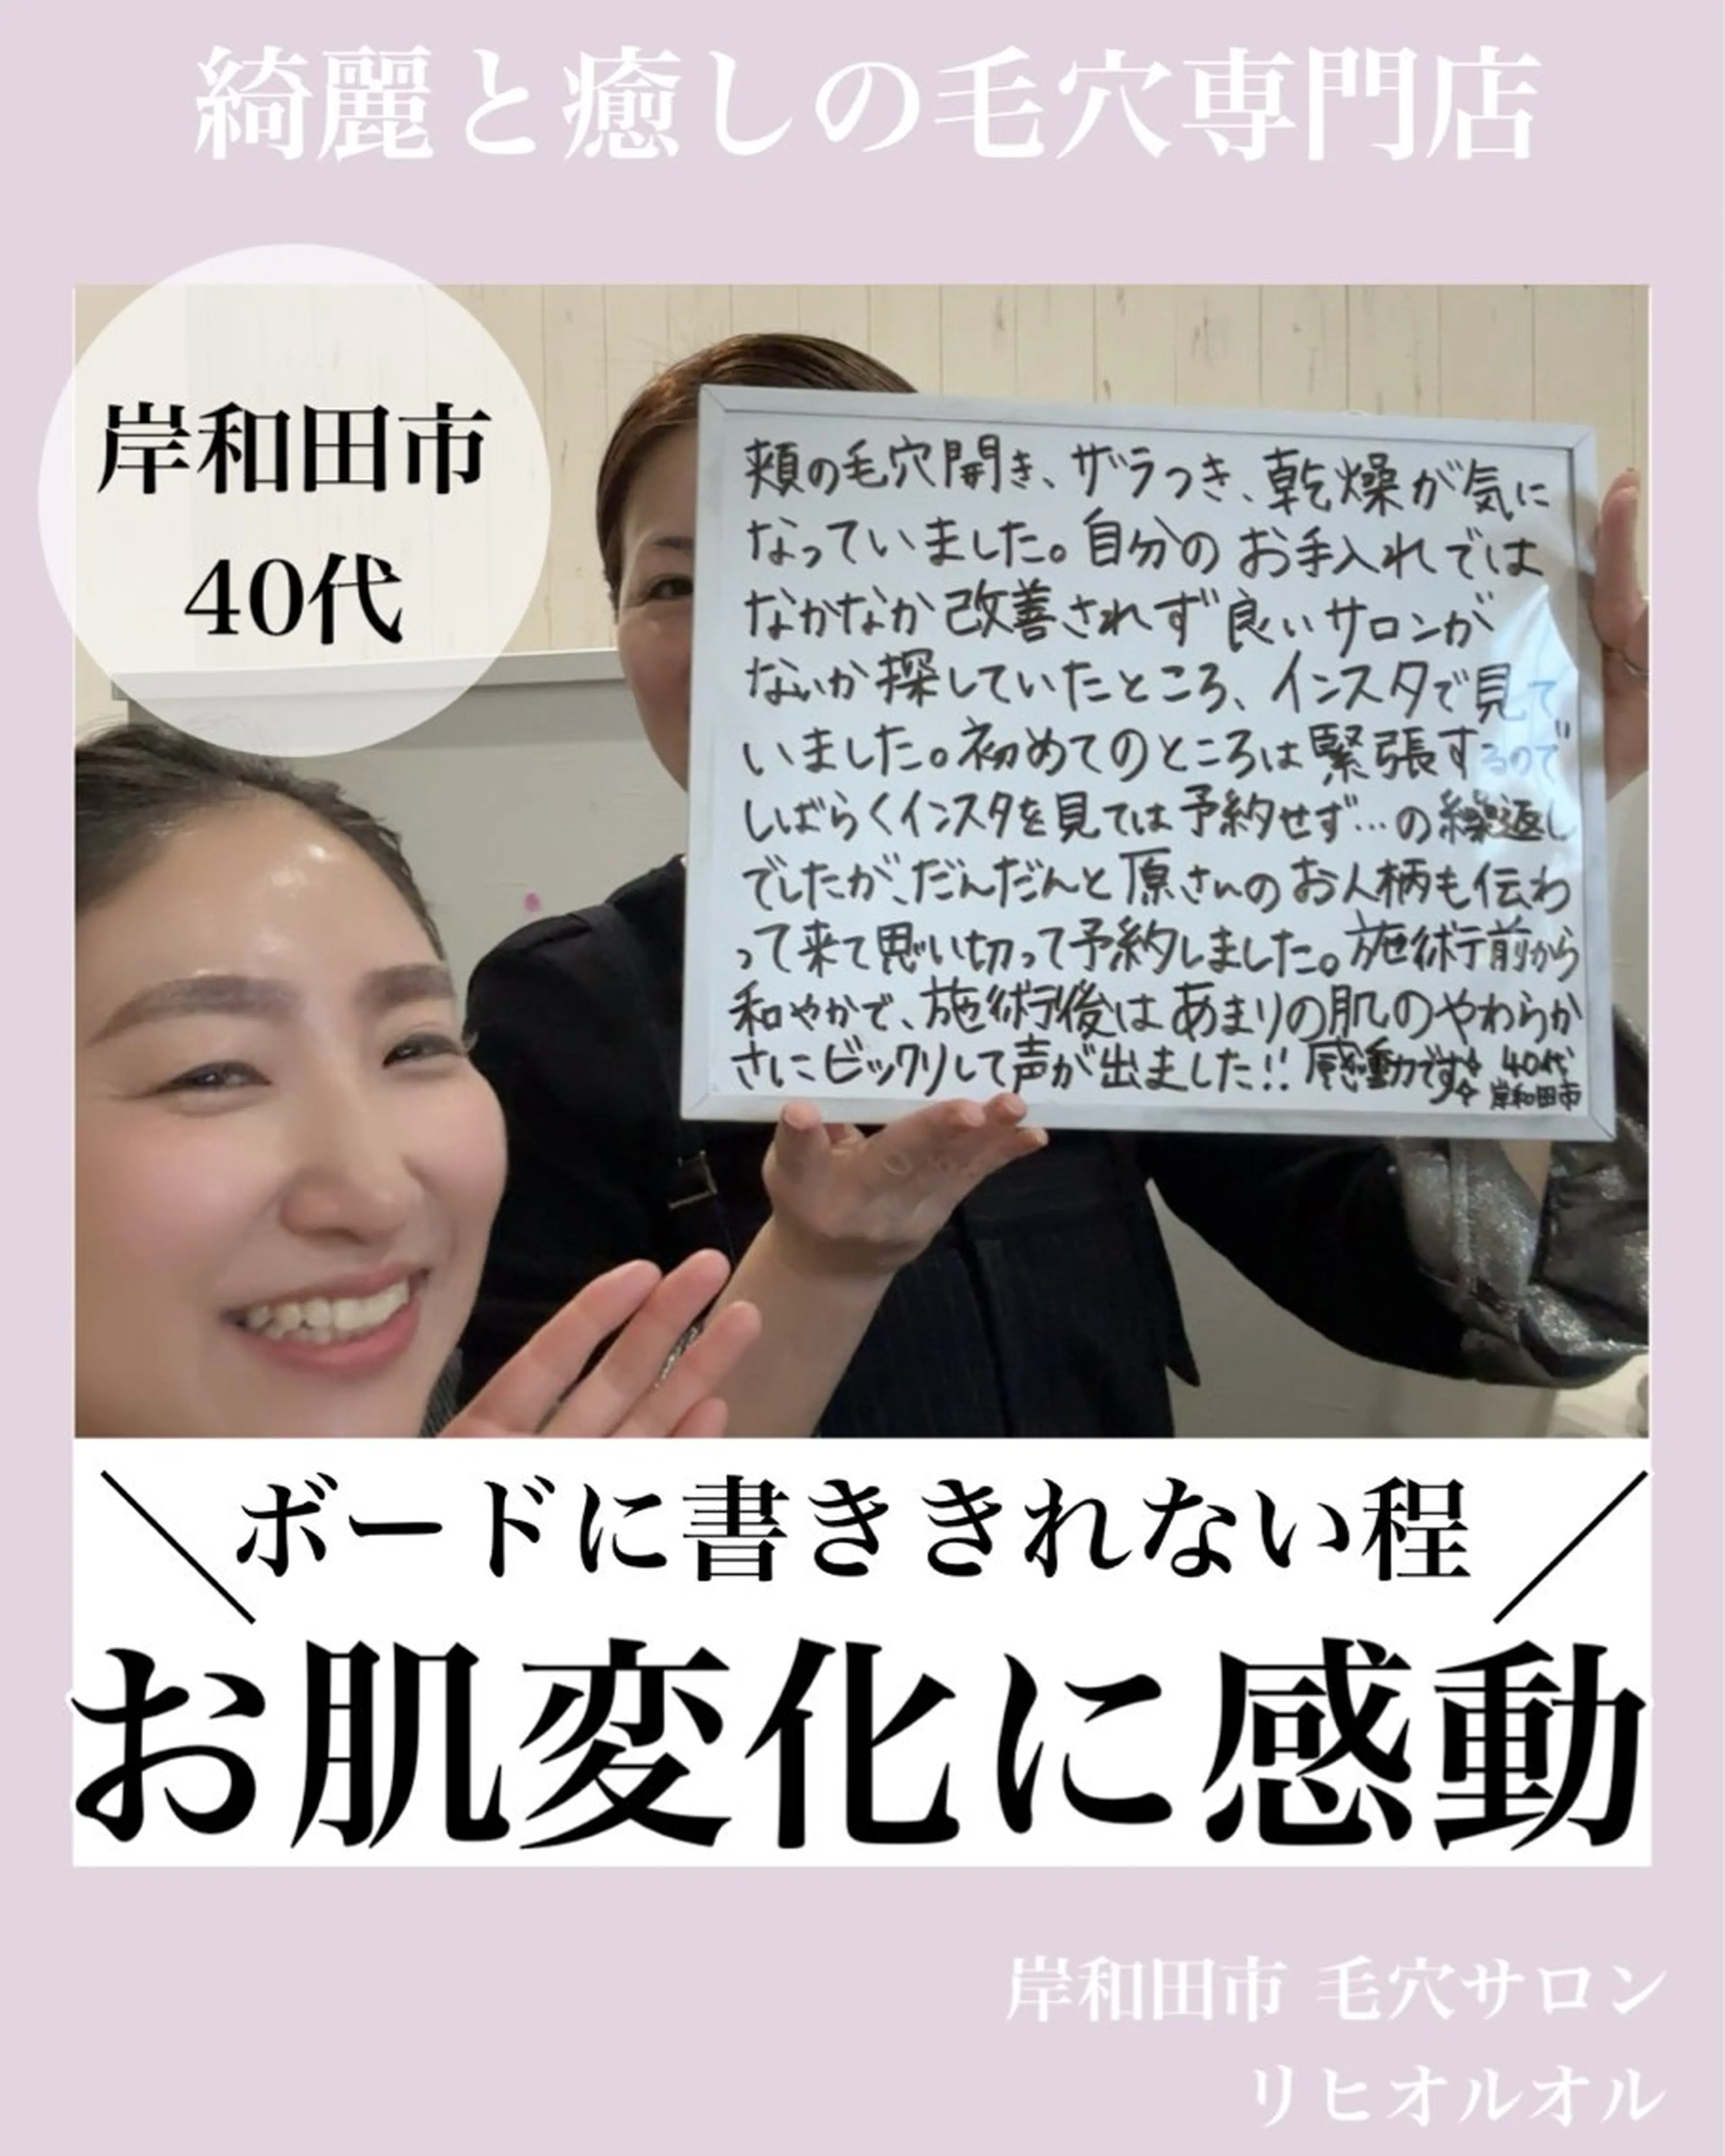 綺麗と癒しの毛穴専門店
岸和田市
40代
頬の毛穴開き、ザラつき、乾燥が気に
なっていました。自分のお手入れでは
なかなか改善されず良いサロンが
ないか探していたところ、インスタで見て
いました。初めてのところは緊張するので
しばらくインスタを見ては予約せず…の繰返し
でしたが、だんだんと原さんのお人柄も伝わ
って来て思い切って予約しました。施術前から
和やかで、施術後はあまりの肌のやわらか
さにビックリして声が出ました!! 感動です☆ 40代
岸和田市
＼ボードに書ききれない程／
お肌変化に感動
岸和田市 毛穴サロン
リヒオルオル